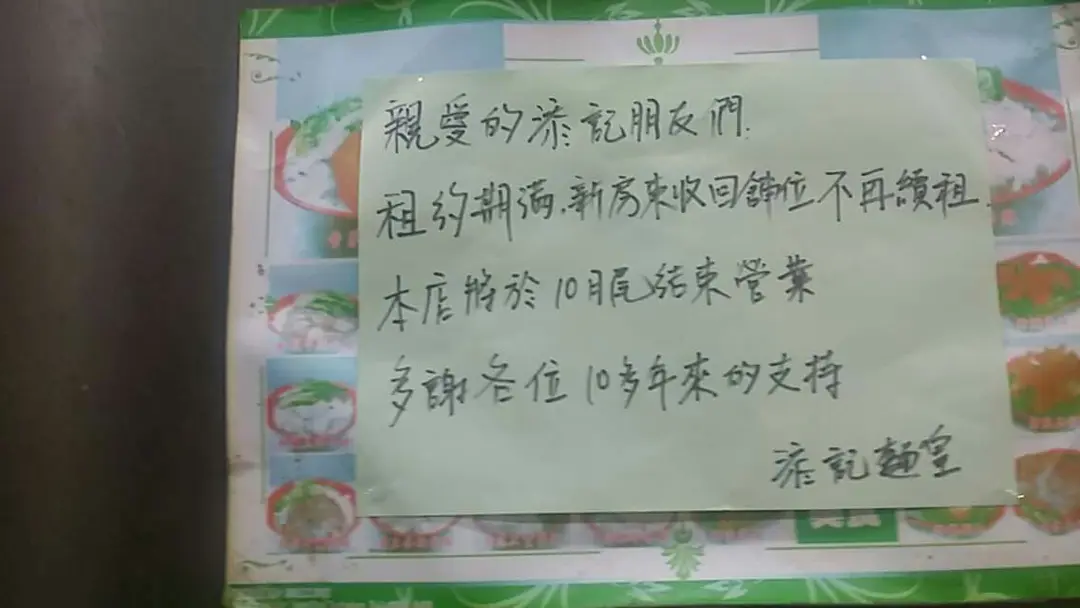 親愛的添記朋友們.
租約期滿.新房東收回舖位不再續租.
本店將於10月尾結束營業
多謝各位10多年來的支持
添記麵皇